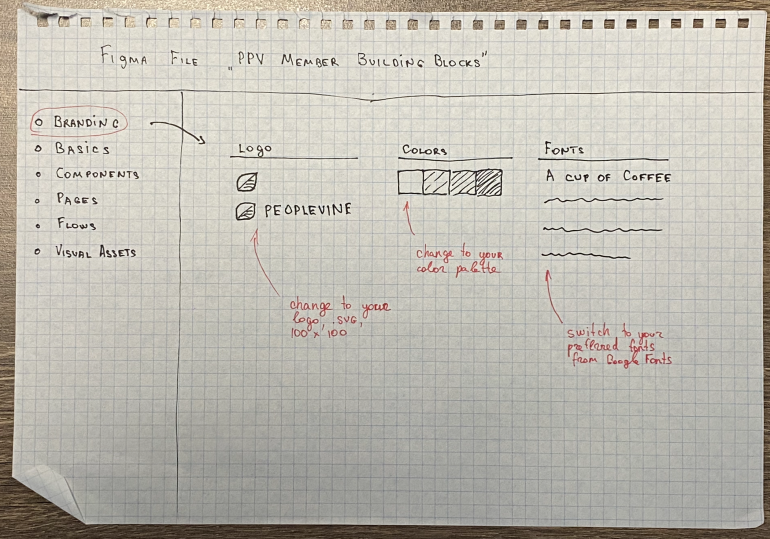 FIGMA FILE „PPV MEMBER BUILDING BLOCKS"
BRANDING
BASICS
COMPONENTS
PAGES
FLOWS
VISUAL ASSETS
LOGO
PEOPLEVINE
change to your
logo, .SVG,
100 x 100
COLORS
change to your
color palette
FONTS
A CUP OF COFFEE
switch to your
preffared fonts
from Google Fonts